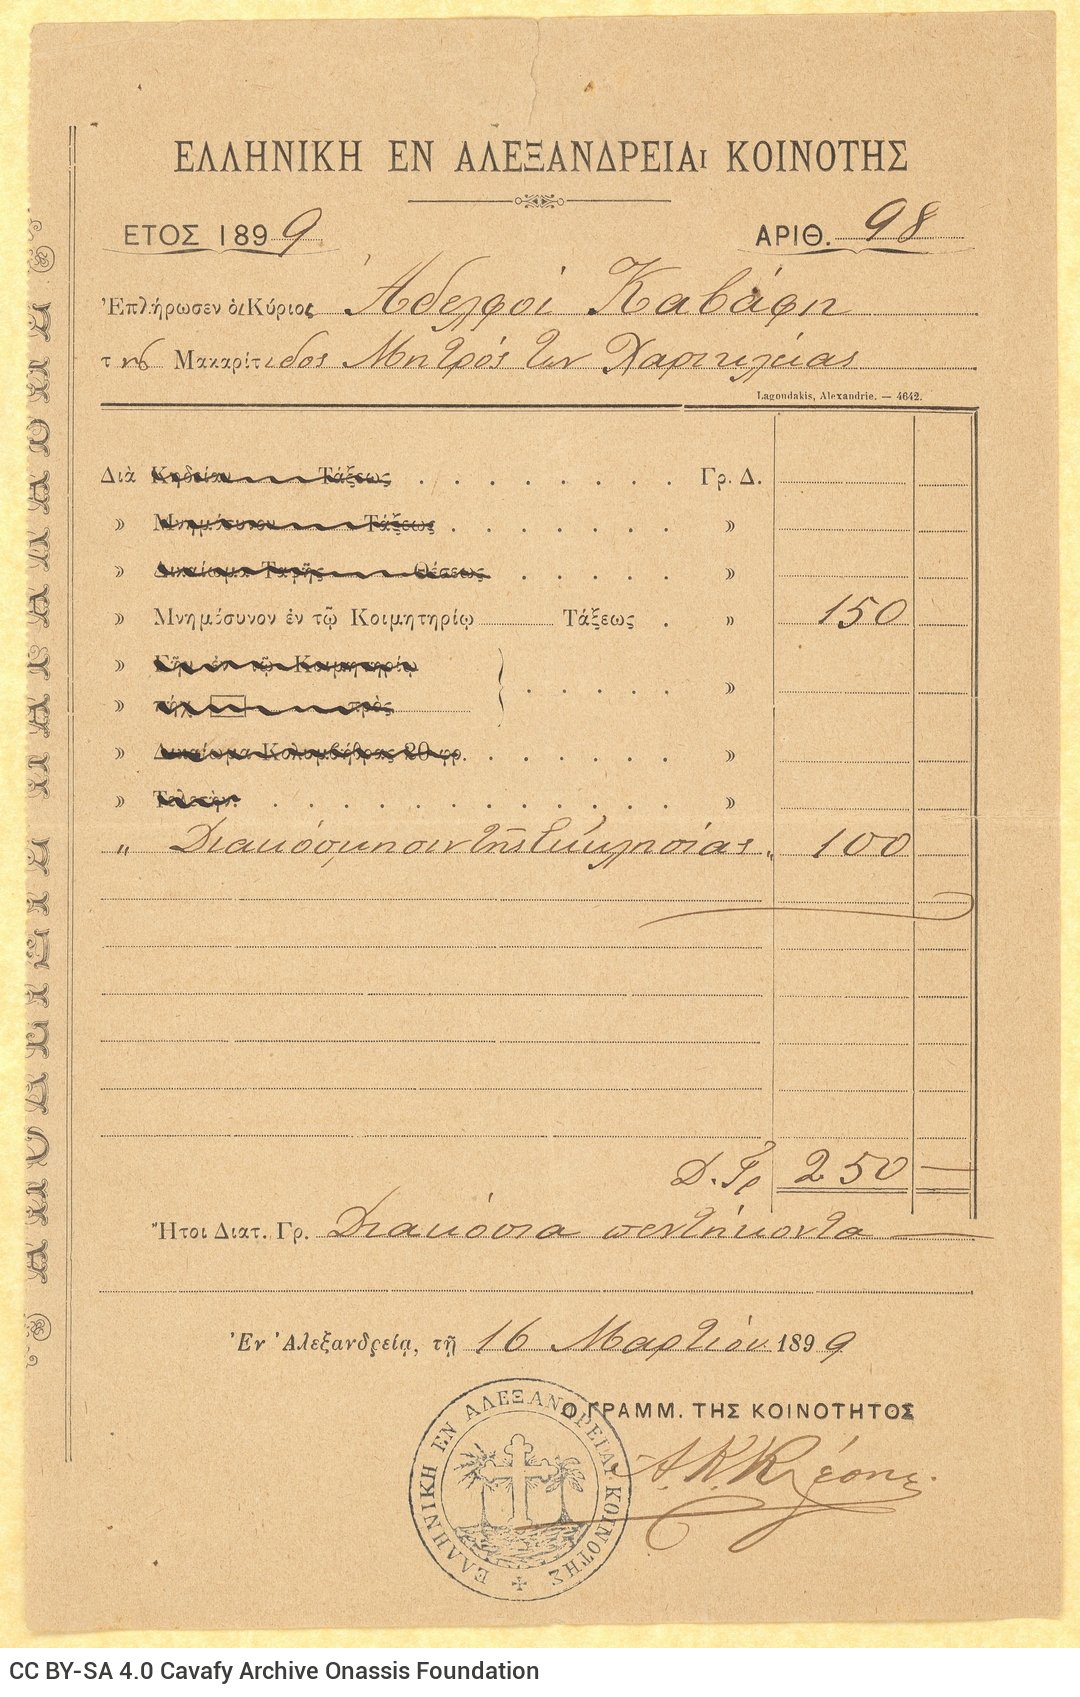 ΕΛΛΗΝΙΚΗ ΕΝ ΑΛΕΞΑΝΔΡΕΙΑι ΚΟΙΝΟΤΗΣ
ΕΤΟΣ 1899 ΑΡΙΘ. 98
Ἐπλήρωσεν ὁι Κύριοι Ἀδελφοί Καβάφη
της Μακαρίτιδος Μητρός των Χαρικλείας
Lagoudakis, Alexandrie. — 4642.
Διὰ Κηδείαν Τάξεως . . . . . . . Γρ. Δ.
» Μνημόσυνον Τάξεως . . . . . . . »
» Δικαίωμα Ταφῆς Θέσεως . . . . . »
» Μνημόσυνον ἐν τῷ Κοιμητηρίῳ Τάξεως . » 150
» Γῆν ἐν τῷ Κοιμητηρίῳ
» πήχ. πρὸς . . . . . »
» Δικαίωμα Κολυμβήθρας 20 φρ. . . . . . »
» . . . . . . . . . . . . »
„ Διακόσμησιν τῆς Ἐκκλησίας „ 100
Δ. Γρ 250 —
Ἤτοι Διατ. Γρ. Διακόσια πεντήκοντα —
Ἐν Ἀλεξανδρείᾳ, τῇ 16 Μαρτίου 1899
Ο ΓΡΑΜΜ. ΤΗΣ ΚΟΙΝΟΤΗΤΟΣ
ΕΛΛΗΝΙΚΗ ΕΝ ΑΛΕΞΑΝΔΡΕΙΑΙ ΚΟΙΝΟΤΗΣ
CC BY-SA 4.0 Cavafy Archive Onassis Foundation